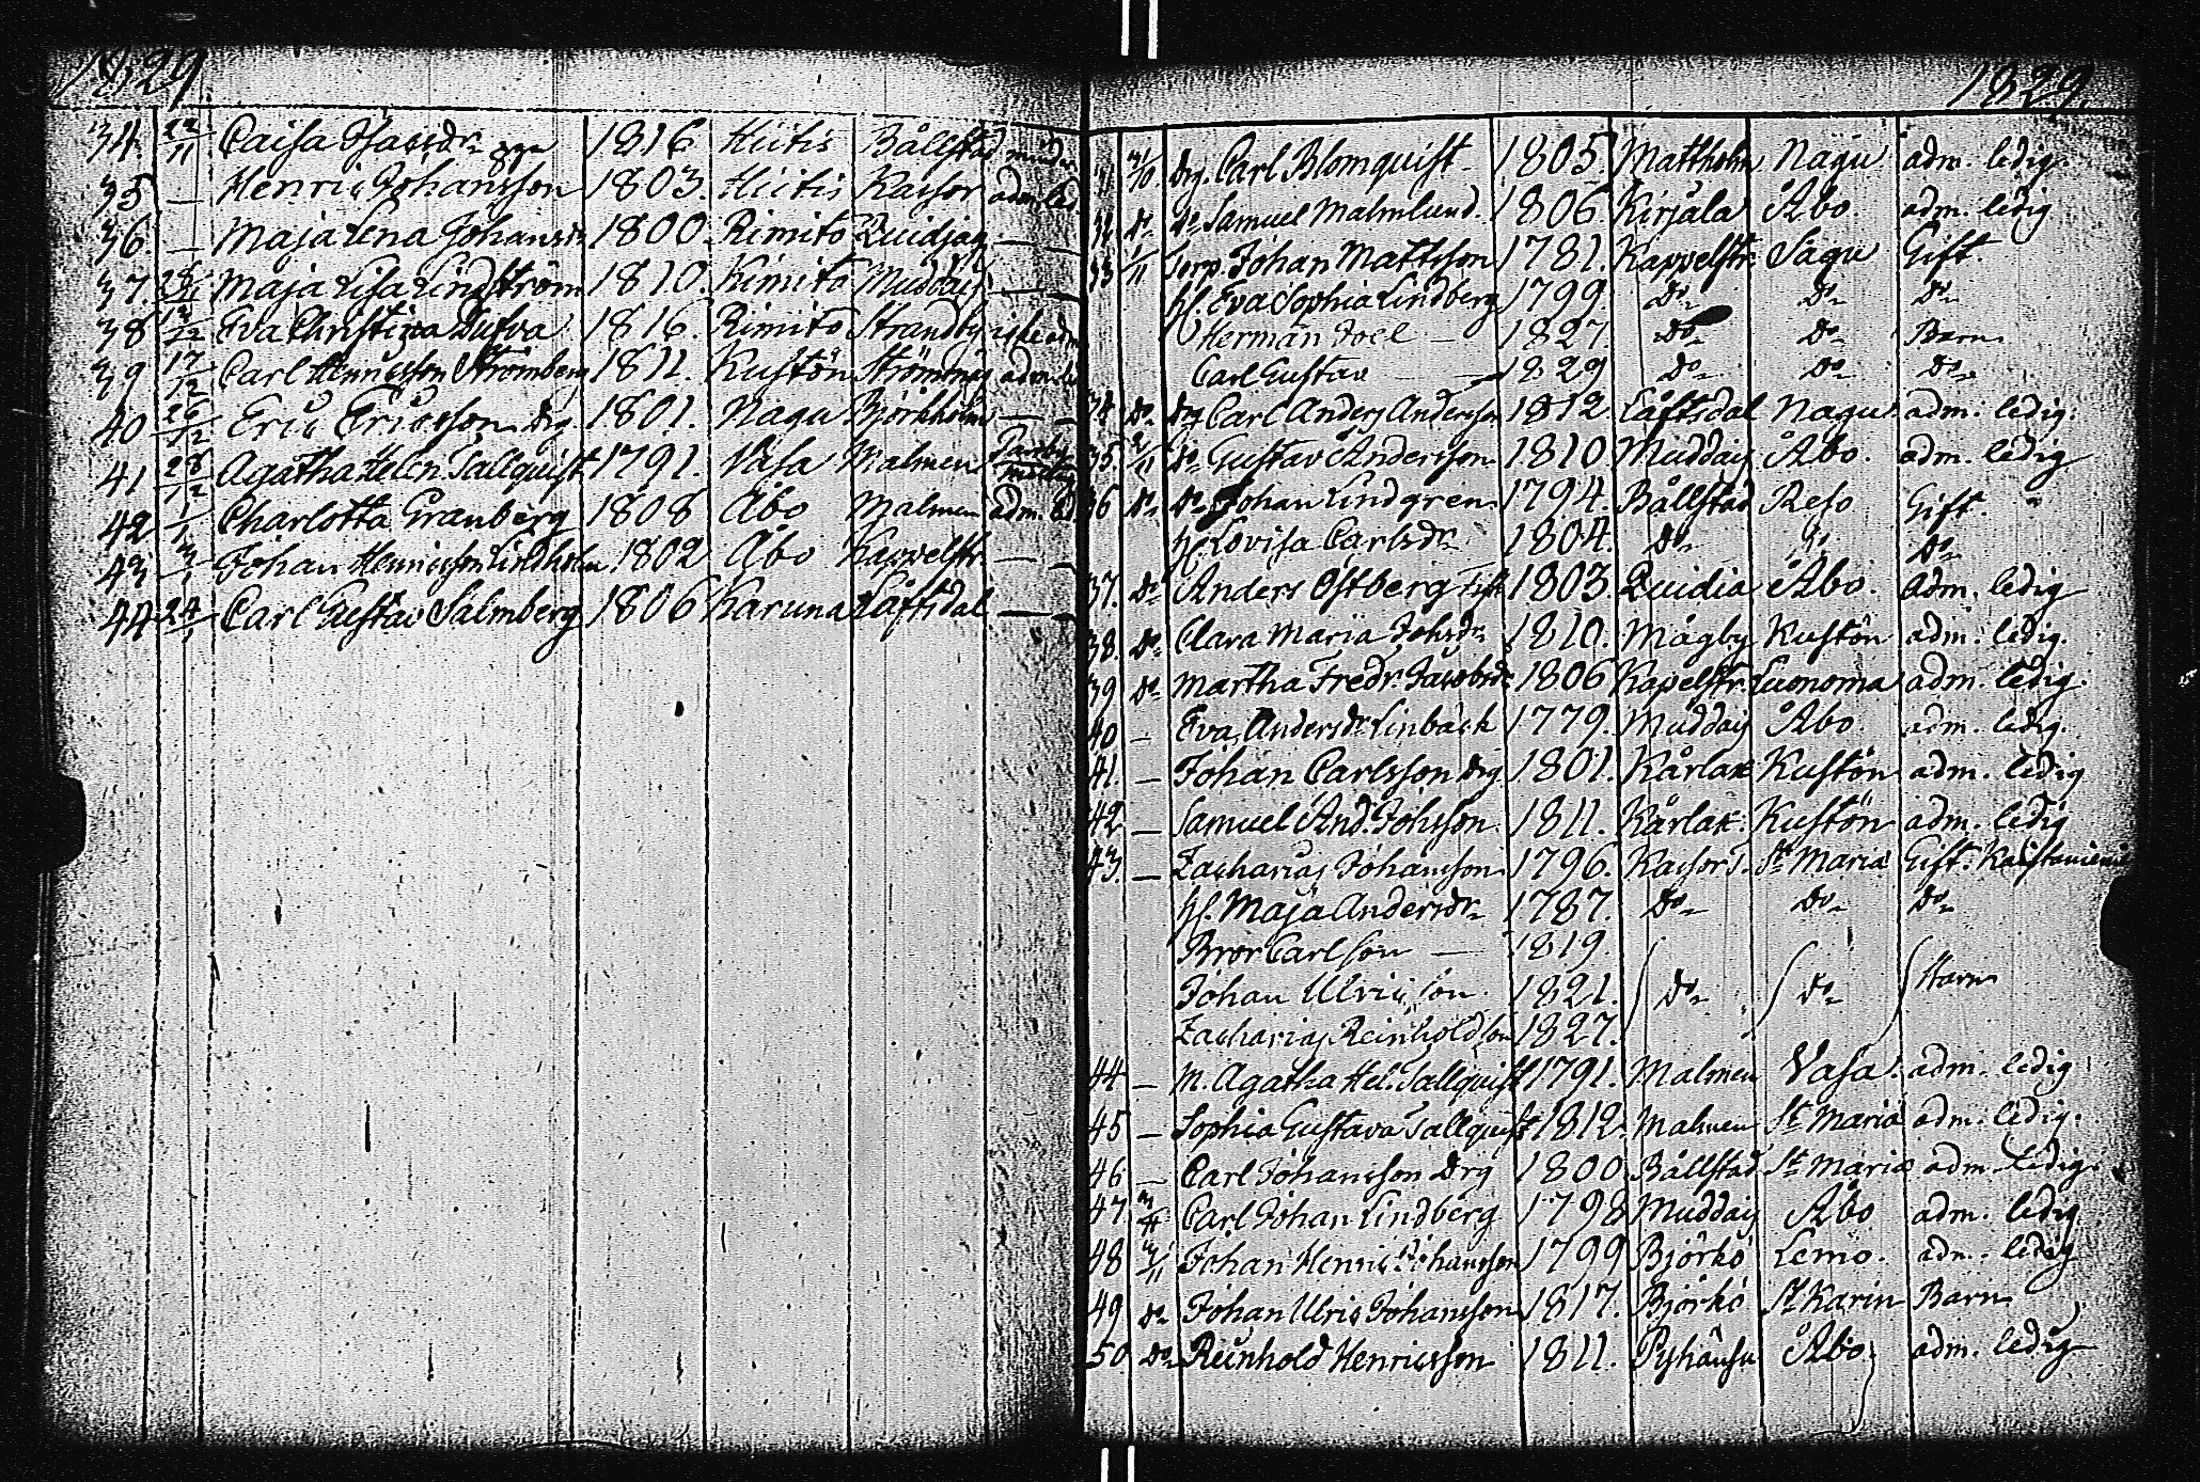 1829
34. 22/11 Caisa Isacsdr 1816 Hiitis Bållstad
35 — Henric Johansson 1803. Hiitis Kasfor adm. led.
36. — Maja Lena Johansdr 1800. Rimito Quidja — —
37. Maja Lisa Lindström 1810. Kimito Muddais — —
38 Eva Christina Dufva 1816. Rimito Strandby
39 17/12 Carl Henricsson Strömberg 1811. Kustön Strömma
40 26/12 Eric Ericsson drg. 1801. Nagu Björkholm — —
41 28/12 Agatha Helen Tallquist 1791. Vasa Malmen
42 1/1 Charlotta Granberg 1808 Åbo Malmen adm. led.
43 3/1 Johan Henricsson Lindholm 1802 Åbo Kappelstr. — —
44 24/1 Carl Gustav Salmberg 1806 Karuna Låftsdal — —
1829.
31/10. drg. Carl Blomquist 1805. Mattholm Nagu adm. ledig.
32 do do Samuel Malmlund. 1806. Kirjala Åbo. adm. ledig
33 1/11 Torp. Johan Mattsson 1781. Kappelstr. Sagu Gift.
h. Eva Sophia Lindberg 1799. do do do
Herman Joel — 1827. do do Barn
Carl Gustav — 1829 do do do
34 do drg Carl Anders Andersson 1812 Låftsdal Nagu. adm. ledig.
35. do Gustav Andersson 1810. Muddais Åbo. adm. ledig
36 do do Johan Lindgren 1794. Bållstad Reso Gift.
h. Lovisa Carlsdr 1804. do do do
37. do Anders Ostberg 1803. Quidia Åbo. adm. ledig
38. do Clara Maria Johsdr 1810. Mågby Kustön adm. ledig.
39 do Martha Fredr. Jacobsdr 1806 Kapelstr. Luonoma adm. ledig.
40 — Eva Andersdr Linbäck 1779. Muddais Åbo adm. ledig.
41. — Johan Carlsson drg 1801. Kårlax Kustön adm. ledig
42 — Samuel And. Johsson. 1811. Kårlax. Kustön adm. ledig
43. — Zacharias Johansson 1796. Kasfors. St Maria Gift.
h. Maja Andersdr 1787. do do do
Bror Carl son — 1819.
Johan Ulric son 1821. do do Barn
Zacharias Reinhold son 1827.
44 — M. Agatha Hel. Tallquist 1791. Malmen Vasa. adm. ledig
45 — Sophia Gustava Tallquist 1812. Malmen St Maria adm. ledig.
46 — Carl Johansson drg 1800 Bållstad St Maria adm. ledig.
47 Carl Johan Lindberg 1798 Muddais Åbo adm. ledig
48 Johan Henric Johansson 1799 Björkö Lemo. adm. ledig
49 do Johan Ulric Johansson 1817. Björkö St Karin Barn
50 do Reinhold Henricsson 1811. Pyhänsu Åbo adm. ledig